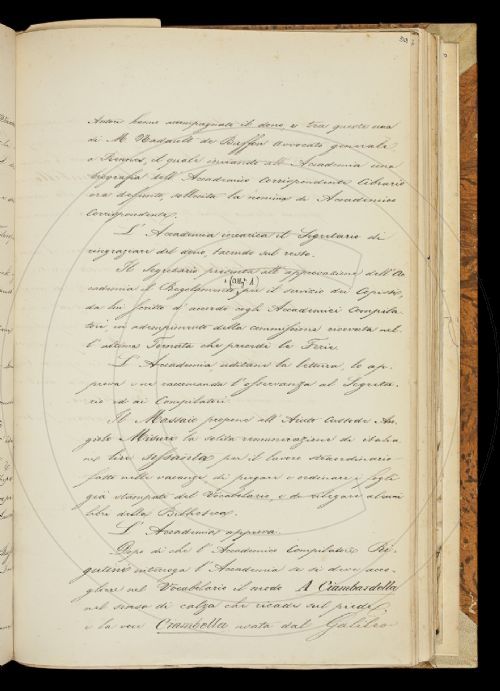 Autori hanno accompagnato il dono, e tra queste una
di M. Nadault de Buffon avvocato generale
a Rennes, il quale inviando all' Accademia una
biografia dell' Accademico Corrispondente Librario
ora defunto, sollecita la nomina di Accademico
Corrispondente.
L' Accademia incarica il Segretario di
ringraziare del dono, tacendo sul resto.
Il Segretario presenta all' approvazione dell' Ac-
(all. 1)
cademia il Regolamento per il servizio dei Copisti,
da lui scritto d' accordo cogli Accademici Compila-
tori, in adempimento della commissione ricevuta nel-
l' ultima Tornata che precedè le Ferie.
L' Accademia uditane la lettura, lo ap-
prova e ne raccomanda l' osservanza al Segreta-
rio ed ai Compilatori.
Il Massaio propone all' Aiuto Custode An-
giolo Misuri la solita remunerazione di italia-
ne lire sessanta per il lavoro straordinario
fatto nelle vacanze di piegare e ordinare i fogli
già stampati del Vocabolario, e di rilegare alcuni
libri della Biblioteca.
L' Accademia approva.
Dopo di che l' Accademico Compilatore Ri-
gutini interroga l' Accademia se si deve acco-
gliere nel Vocabolario il modo A Ciambardella
nel senso di calza che ricade sul piede;
e la voce Crambella usata dal Galileo